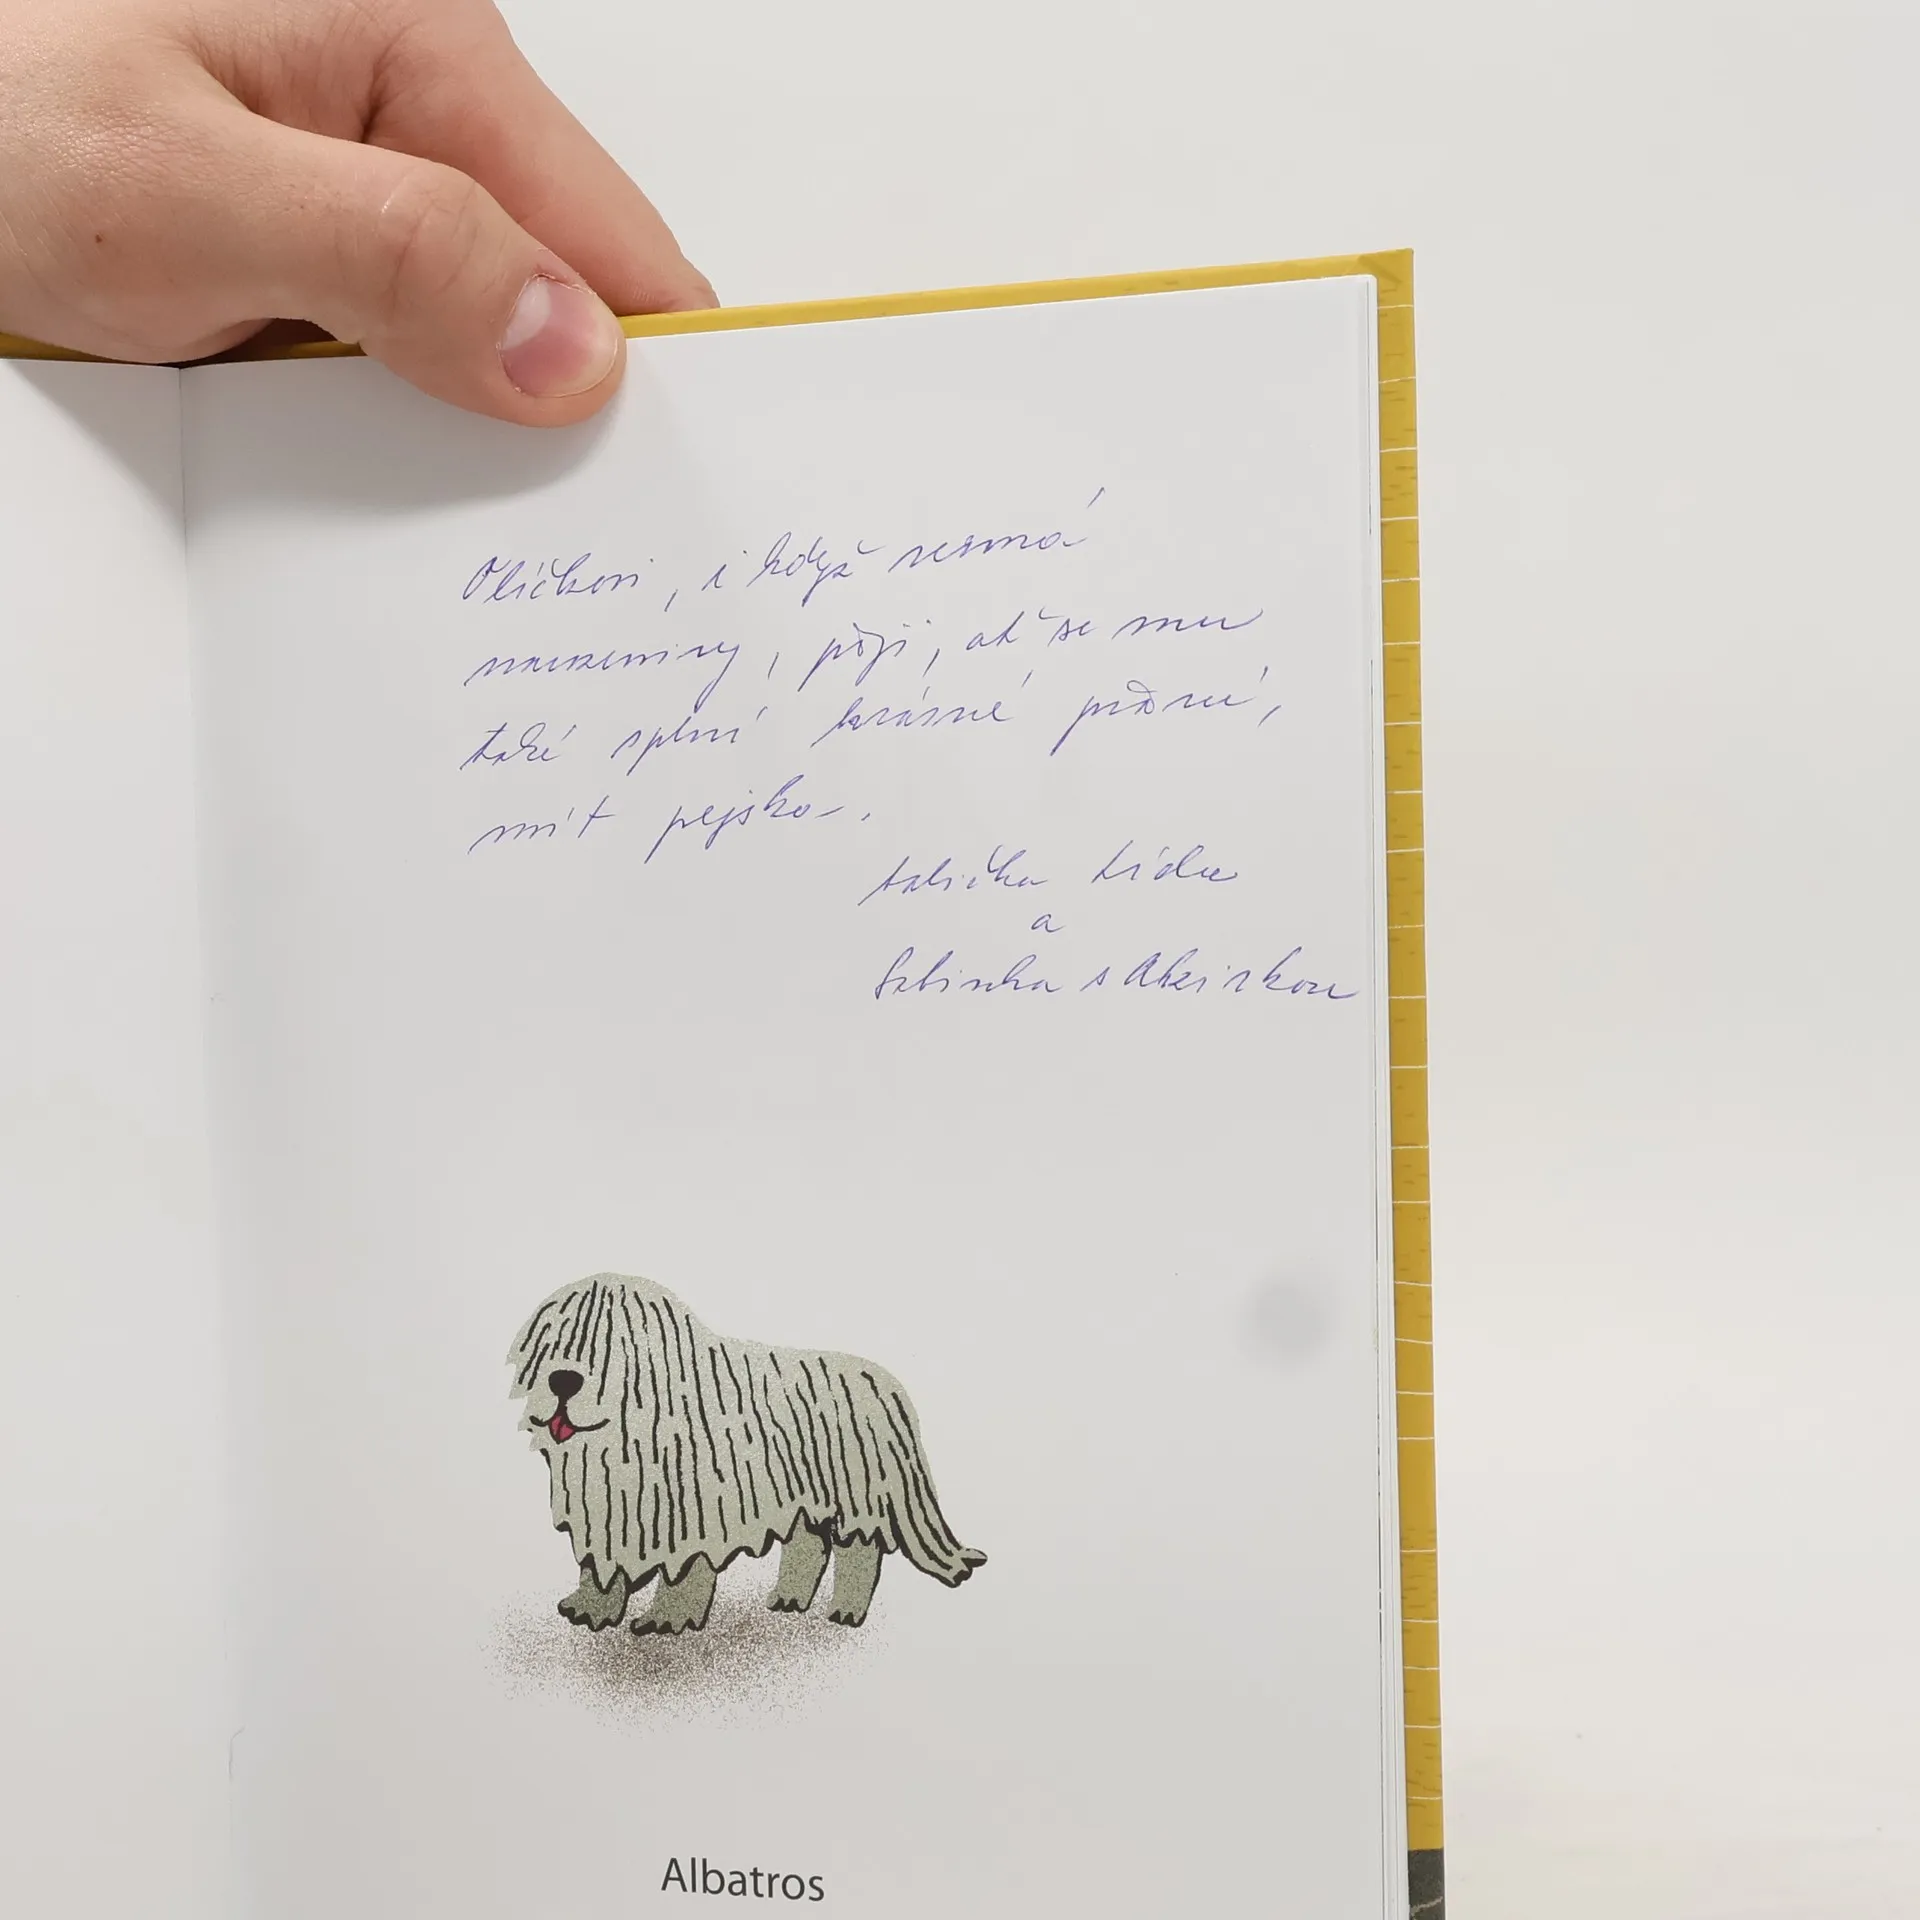 Olíčkovi, i když nemá
narozeniny, přeji, ať se mu
také splní krásné přání,
mít pejska.
babička Lída
a
Sabinka s Akirkou
Albatros